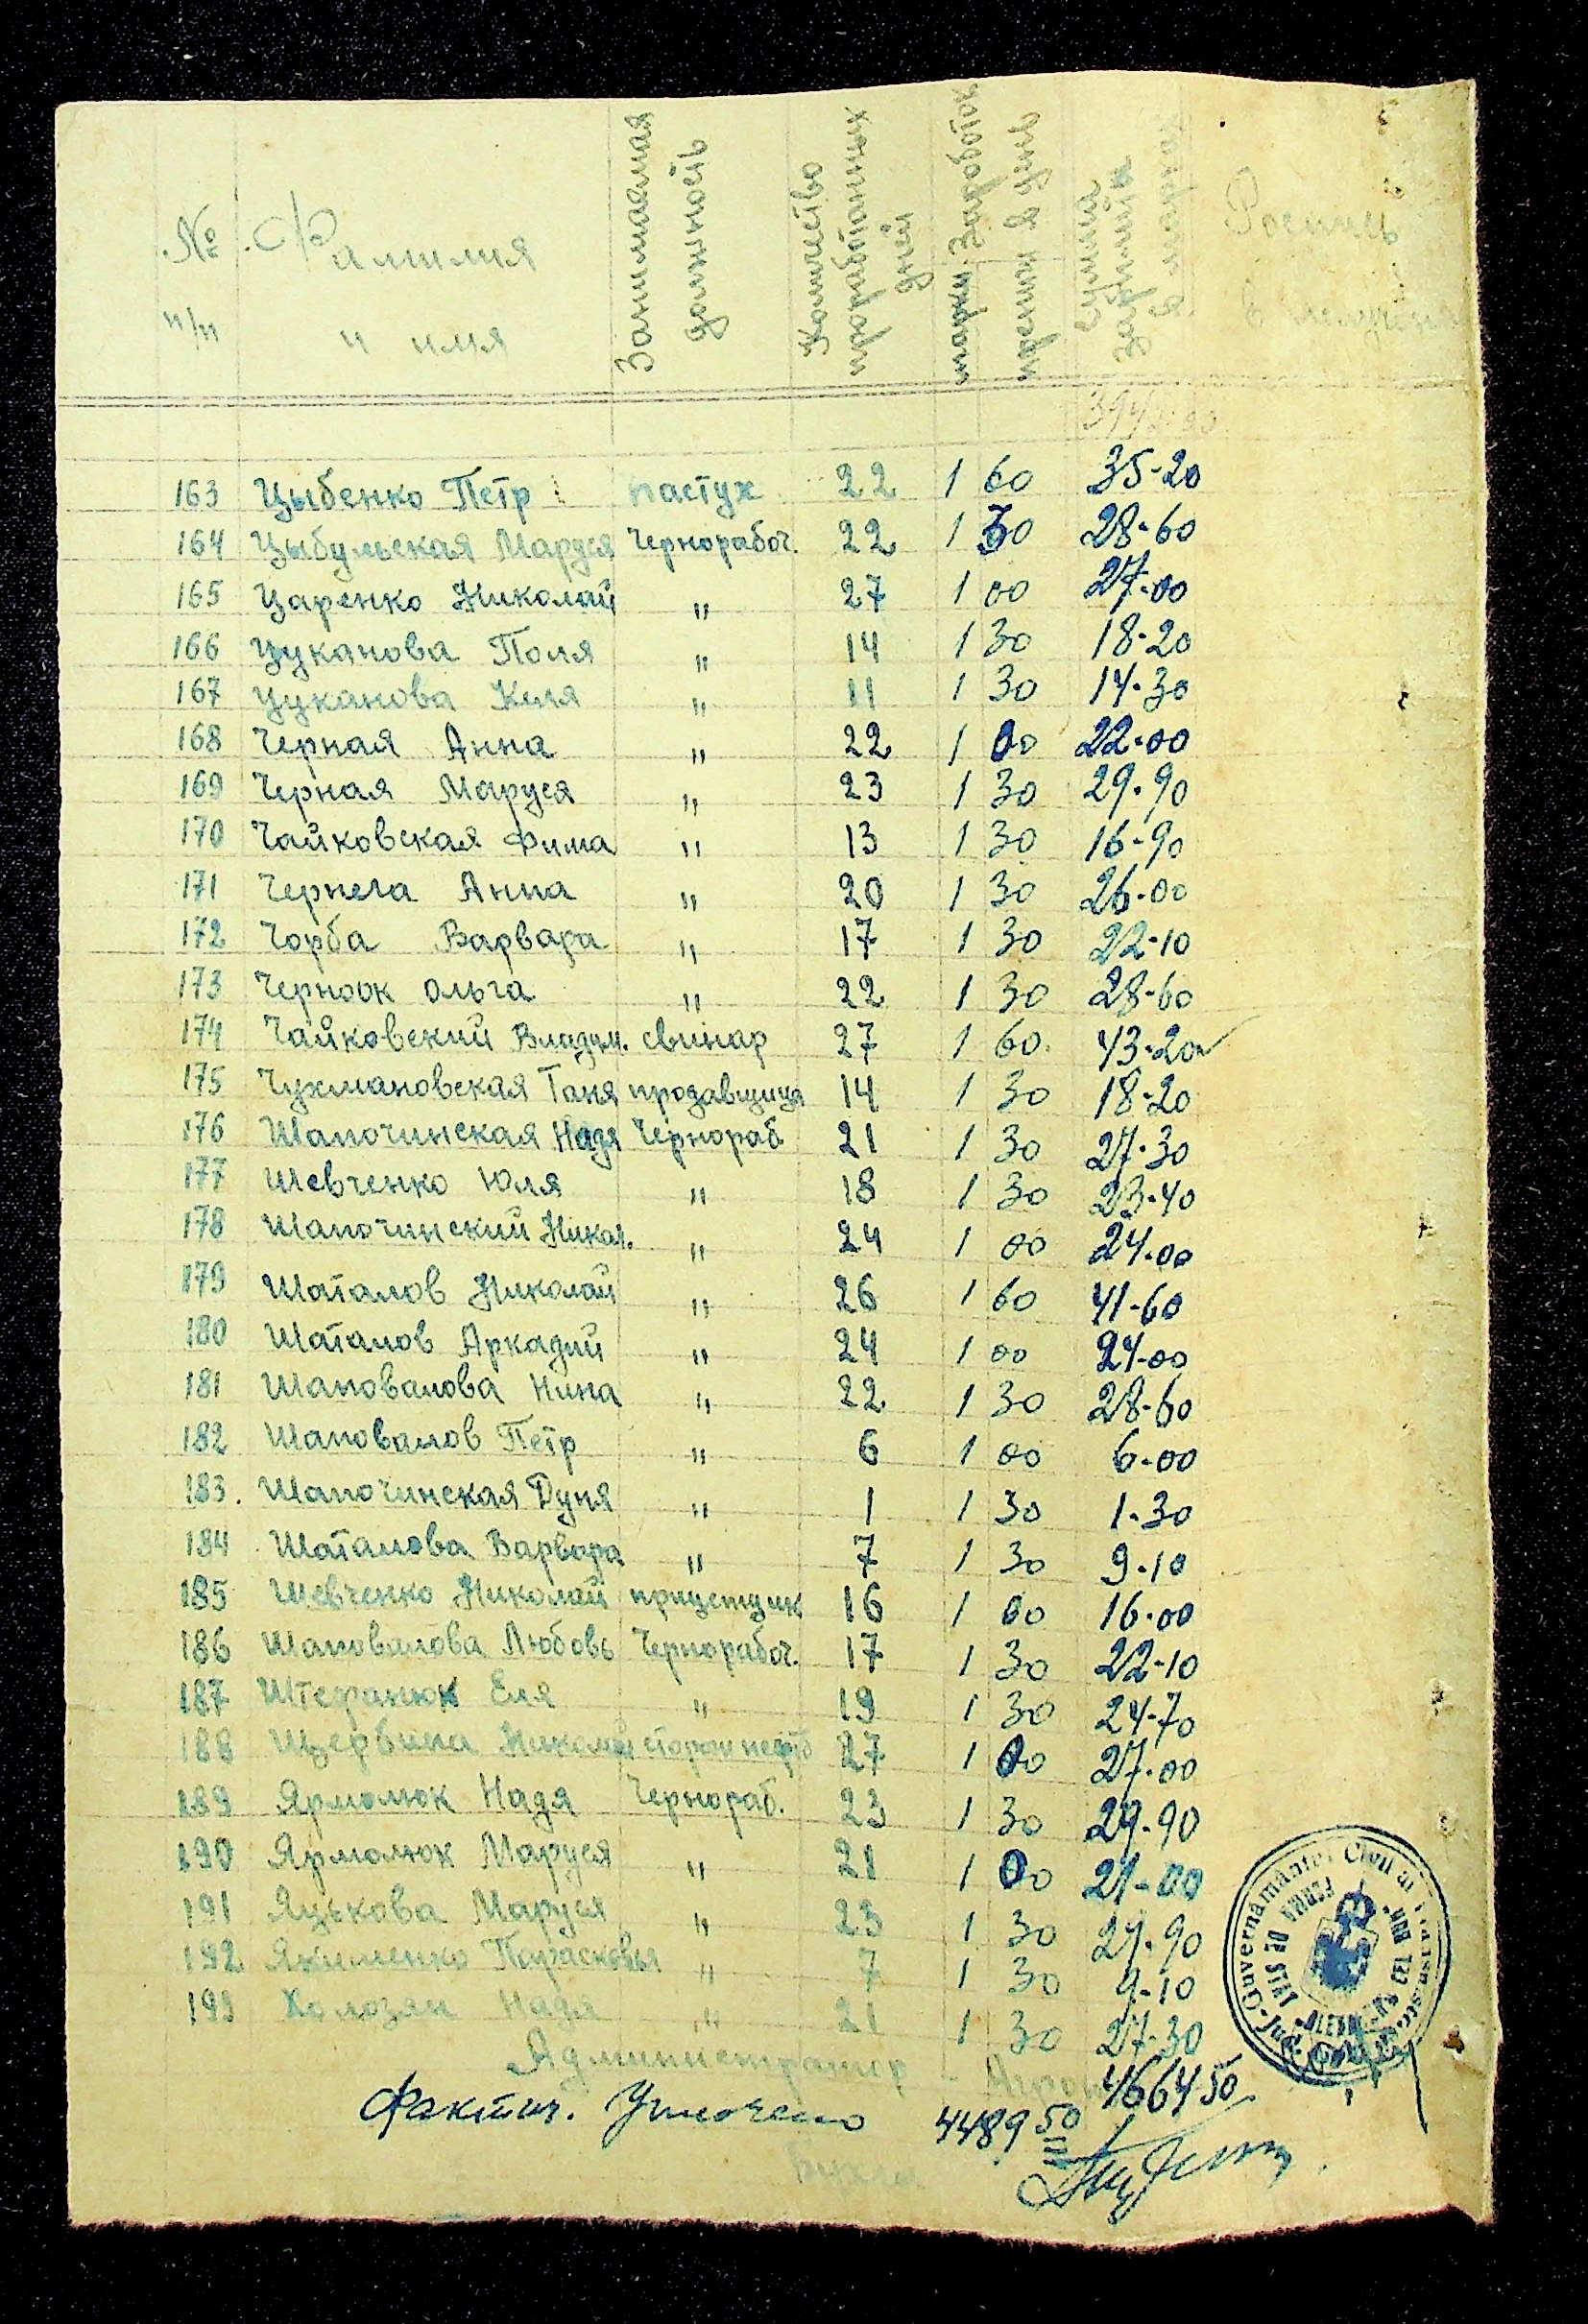 № Фамилия Занимаемая Количество Заработок Сумма Роспись
п/п и имя должность проработанных дней марки пфенниг в день зарплаты в марках в
163 Цыбенко Петр пастух 22 1 60 35-20
164 Цыбульская Маруся Чернорабоч. 22 1 30 28-60
165 Царенко Николай " 27 1 00 27-00
166 Цуканова Поля " 14 1 30 18-20
167 Цуканова Киля " 11 1 30 14-30
168 Черная Анна " 22 1 00 22-00
169 Черная Маруся " 23 1 30 29-90
170 Чайковская Фима " 13 1 30 16-90
171 Чернега Анна " 20 1 30 26-00
172 Чорба Варвара " 17 1 30 22-10
173 Черноок Ольга " 22 1 30 28-60
174 Чайковский Владим. свинар 27 1 60 43-20
175 Чухмановская Таня продавщица 14 1 30 18-20
176 Шапочинская Надя Чернораб 21 1 30 27-30
177 Шевченко Юля " 18 1 30 23-40
178 Шапочинский Никол. " 24 1 00 24-00
179 Шаталов Николай " 26 1 60 41-60
180 Шаталов Аркадий " 24 1 00 24-00
181 Шаповалова Нина " 22 1 30 28-60
182 Шаповалов Петр " 6 1 00 6-00
183. Шапочинская Дуня " 1 1 30 1-30
184 Шаталова Варвара " 7 1 30 9-10
185 Шевченко Николай прицепщик 16 1 00 16-00
186 Шаповалова Любовь Чернорабоч. 17 1 30 22-10
187 Штефанюк Еля " 19 1 30 24-70
188 Щербина Николай сторож 27 1 00 27-00
189 Ярмолюк Надя Чернораб. 23 1 30 29-90
190 Ярмолюк Маруся " 21 1 00 21-00
191 Яцькова Маруся " 23 1 30 29-90
192 Якименко Парасковья " 7 1 30 9-10
193 Холозян Надя " 21 1 30 27-30
Администратор - 4664 50
Фактич. Уплочено 4489 50
Guvernământul Civil al
FERMA DE STAT